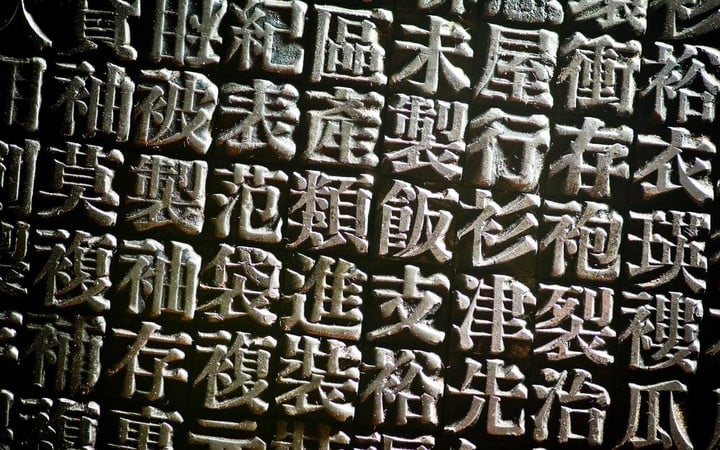 賍紀區未屋衝裕
用袖被表產製行存衣
莫製范類飯衫袍瑛
複袖袋進支津裂褸
補存複裝裕先治瓜